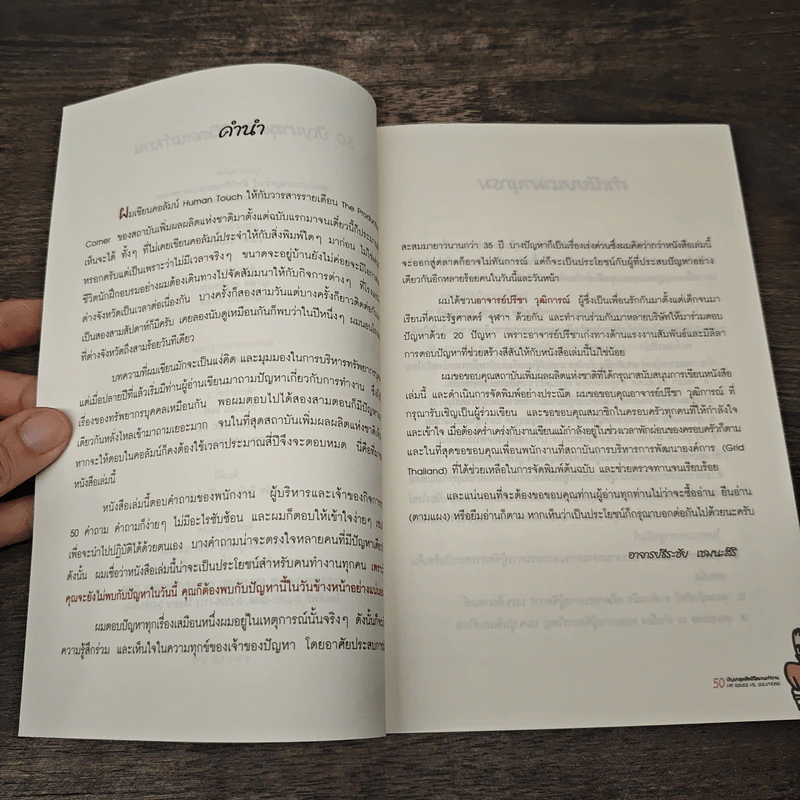 คำนำ
ผมเขียนคอลัมน์ Human Touch ให้กับวารสารรายเดือน The
Corner ของสถาบันเพิ่มผลผลิตแห่งชาติมาตั้งแต่ฉบับแรกมาจนเดี๋ยวนี้ก็
เห็นจะได้ ทั้งๆ ที่ไม่เคยเขียนคอลัมน์ประจำให้กับสิ่งพิมพ์ใดๆ มาก่อน
หรอกครับแต่เป็นเพราะว่าไม่มีเวลาจริงๆ ขณะจะอยู่บ้านยังไม่ค่อยจะ
ชีวิตนักฝึกอบรมอย่างผมต้องเดินทางไปจัดสัมมนาให้กับกิจการต่างๆ
ต่างจังหวัดเป็นเวลาต่อเนื่องกัน บางครั้งก็สองสามวันแต่บางครั้งก็ยาวติดต่อกัน
เป็นสองสามสัปดาห์ก็มีครับ เคยลองนับดูเหมือนกันก็พบว่าในปีหนึ่งๆ
ที่ต่างจังหวัดถึงสามร้อยวันทีเดียว
บทความที่ผมเขียนมักจะเป็นแง่คิด และมุมมองในการบริหารทรัพยากรบุคคล
แต่เมื่อปลายปีที่แล้วเริ่มมีท่านผู้อ่านเขียนมาถามปัญหาเกี่ยวกับการทำงาน
เรื่องของทรัพยากรบุคคลเหมือนกัน พอผมตอบไปได้สองสามตอนก็มีปัญหา
เดียวกันหลั่งไหลเข้ามาถามเยอะมาก จนในที่สุดสถาบันเพิ่มผลผลิตแห่งชาติ
หากจะให้ตอบในคอลัมน์ก็คงต้องใช้เวลาประมาณสี่ปีจึงจะตอบหมด นี่คือ
หนังสือเล่มนี้
หนังสือเล่มนี้ตอบคำถามของพนักงาน ผู้บริหารและเจ้าของกิจการ
50 คำถาม คำถามก็ง่ายๆ ไม่มีอะไรซับซ้อน และผมก็ตอบให้เข้าใจง่ายๆ
เพื่อจะนำไปปฏิบัติได้ด้วยตนเอง บางคำถามน่าจะตรงใจหลายคนที่มีปัญหา
ดังนั้น ผมเชื่อว่าหนังสือเล่มนี้น่าจะเป็นประโยชน์สำหรับคนทำงานทุกคน
คุณจะยังไม่พบกับปัญหาในวันนี้ คุณก็ต้องพบกับปัญหานี้ในวันข้างหน้าอย่าง
ผมตอบปัญหาทุกเรื่องเสมือนหนึ่งผมอยู่ในเหตุการณ์นั้นจริงๆ ดังนั้น
ความรู้สึกร่วม และเห็นใจในความทุกข์ของเจ้าของปัญหา โดยอาศัยประสบการ
สะสมมายาวนานกว่า 35 ปี บางปัญหาก็เป็นเรื่องเร่งด่วนซึ่งผมคิดว่ากว่าหนังสือเล่มนี้
จะออกสู่ตลาดก็อาจไม่ทันการณ์ แต่ก็จะเป็นประโยชน์กับผู้ที่ประสบปัญหาอย่าง
เดียวกันอีกหลายร้อยคนในวันนี้และวันหน้า
ผมได้ชวนอาจารย์ปรีชา วุฒิการณ์ ผู้ซึ่งเป็นเพื่อนรักกันมาตั้งแต่เด็กจนมา
เรียนที่คณะรัฐศาสตร์ จุฬาฯ ด้วยกัน และทำงานร่วมกันมาหลายบริษัทให้มาร่วมตอบ
ปัญหาด้วย 20 ปัญหา เพราะอาจารย์ปรีชาเก่งทางด้านแรงงานสัมพันธ์และมีลีลา
การตอบปัญหาที่ช่วยสร้างสีสันให้กับหนังสือเล่มนี้ไม่ใช่น้อย
ผมขอขอบคุณสถาบันเพิ่มผลผลิตแห่งชาติที่ได้กรุณาสนับสนุนการเขียนหนังสือ
เล่มนี้ และดำเนินการจัดพิมพ์อย่างประณีต ผมขอขอบคุณอาจารย์ปรีชา วุฒิการณ์ ที่
กรุณารับเชิญเป็นผู้ร่วมเขียน และขอขอบคุณสมาชิกในครอบครัวทุกคนที่ให้กำลังใจ
และเข้าใจ เมื่อต้องคร่ำเคร่งกับงานเขียนแม้กำลังอยู่ในช่วงเวลาพักผ่อนของครอบครัวก็ตาม
และในที่สุดขอขอบคุณเพื่อนพนักงานที่สถาบันการบริหารการพัฒนาองค์การ (Grid
Thailand) ที่ได้ช่วยเหลือในการจัดพิมพ์ต้นฉบับ และช่วยตรวจทานจนเรียบร้อย
และแน่นอนที่จะต้องขอขอบคุณท่านผู้อ่านทุกท่านไม่ว่าจะซื้ออ่าน ยืนอ่าน
(ตามแผง) หรือยืมอ่านก็ตาม หากเห็นว่าเป็นประโยชน์ก็กรุณาบอกต่อกันไปด้วยนะครับ
อาจารย์ธีระชัย เชมนะสิริ
50 ปัญหาสุดฮิตชีวิตคนทำงาน
HR ISSUES HR SOLUTIONS